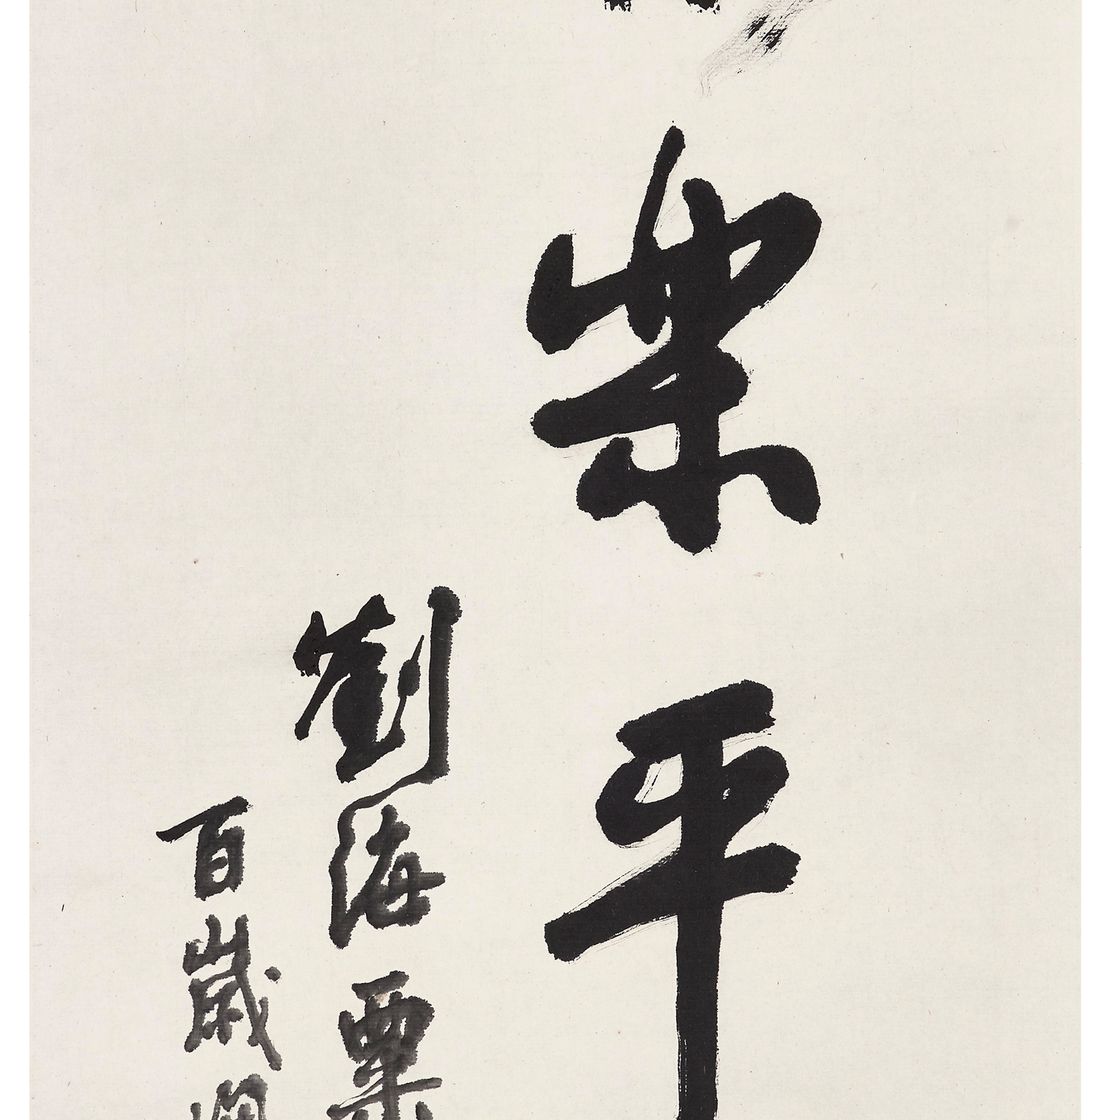 業平
劉海粟
百歲